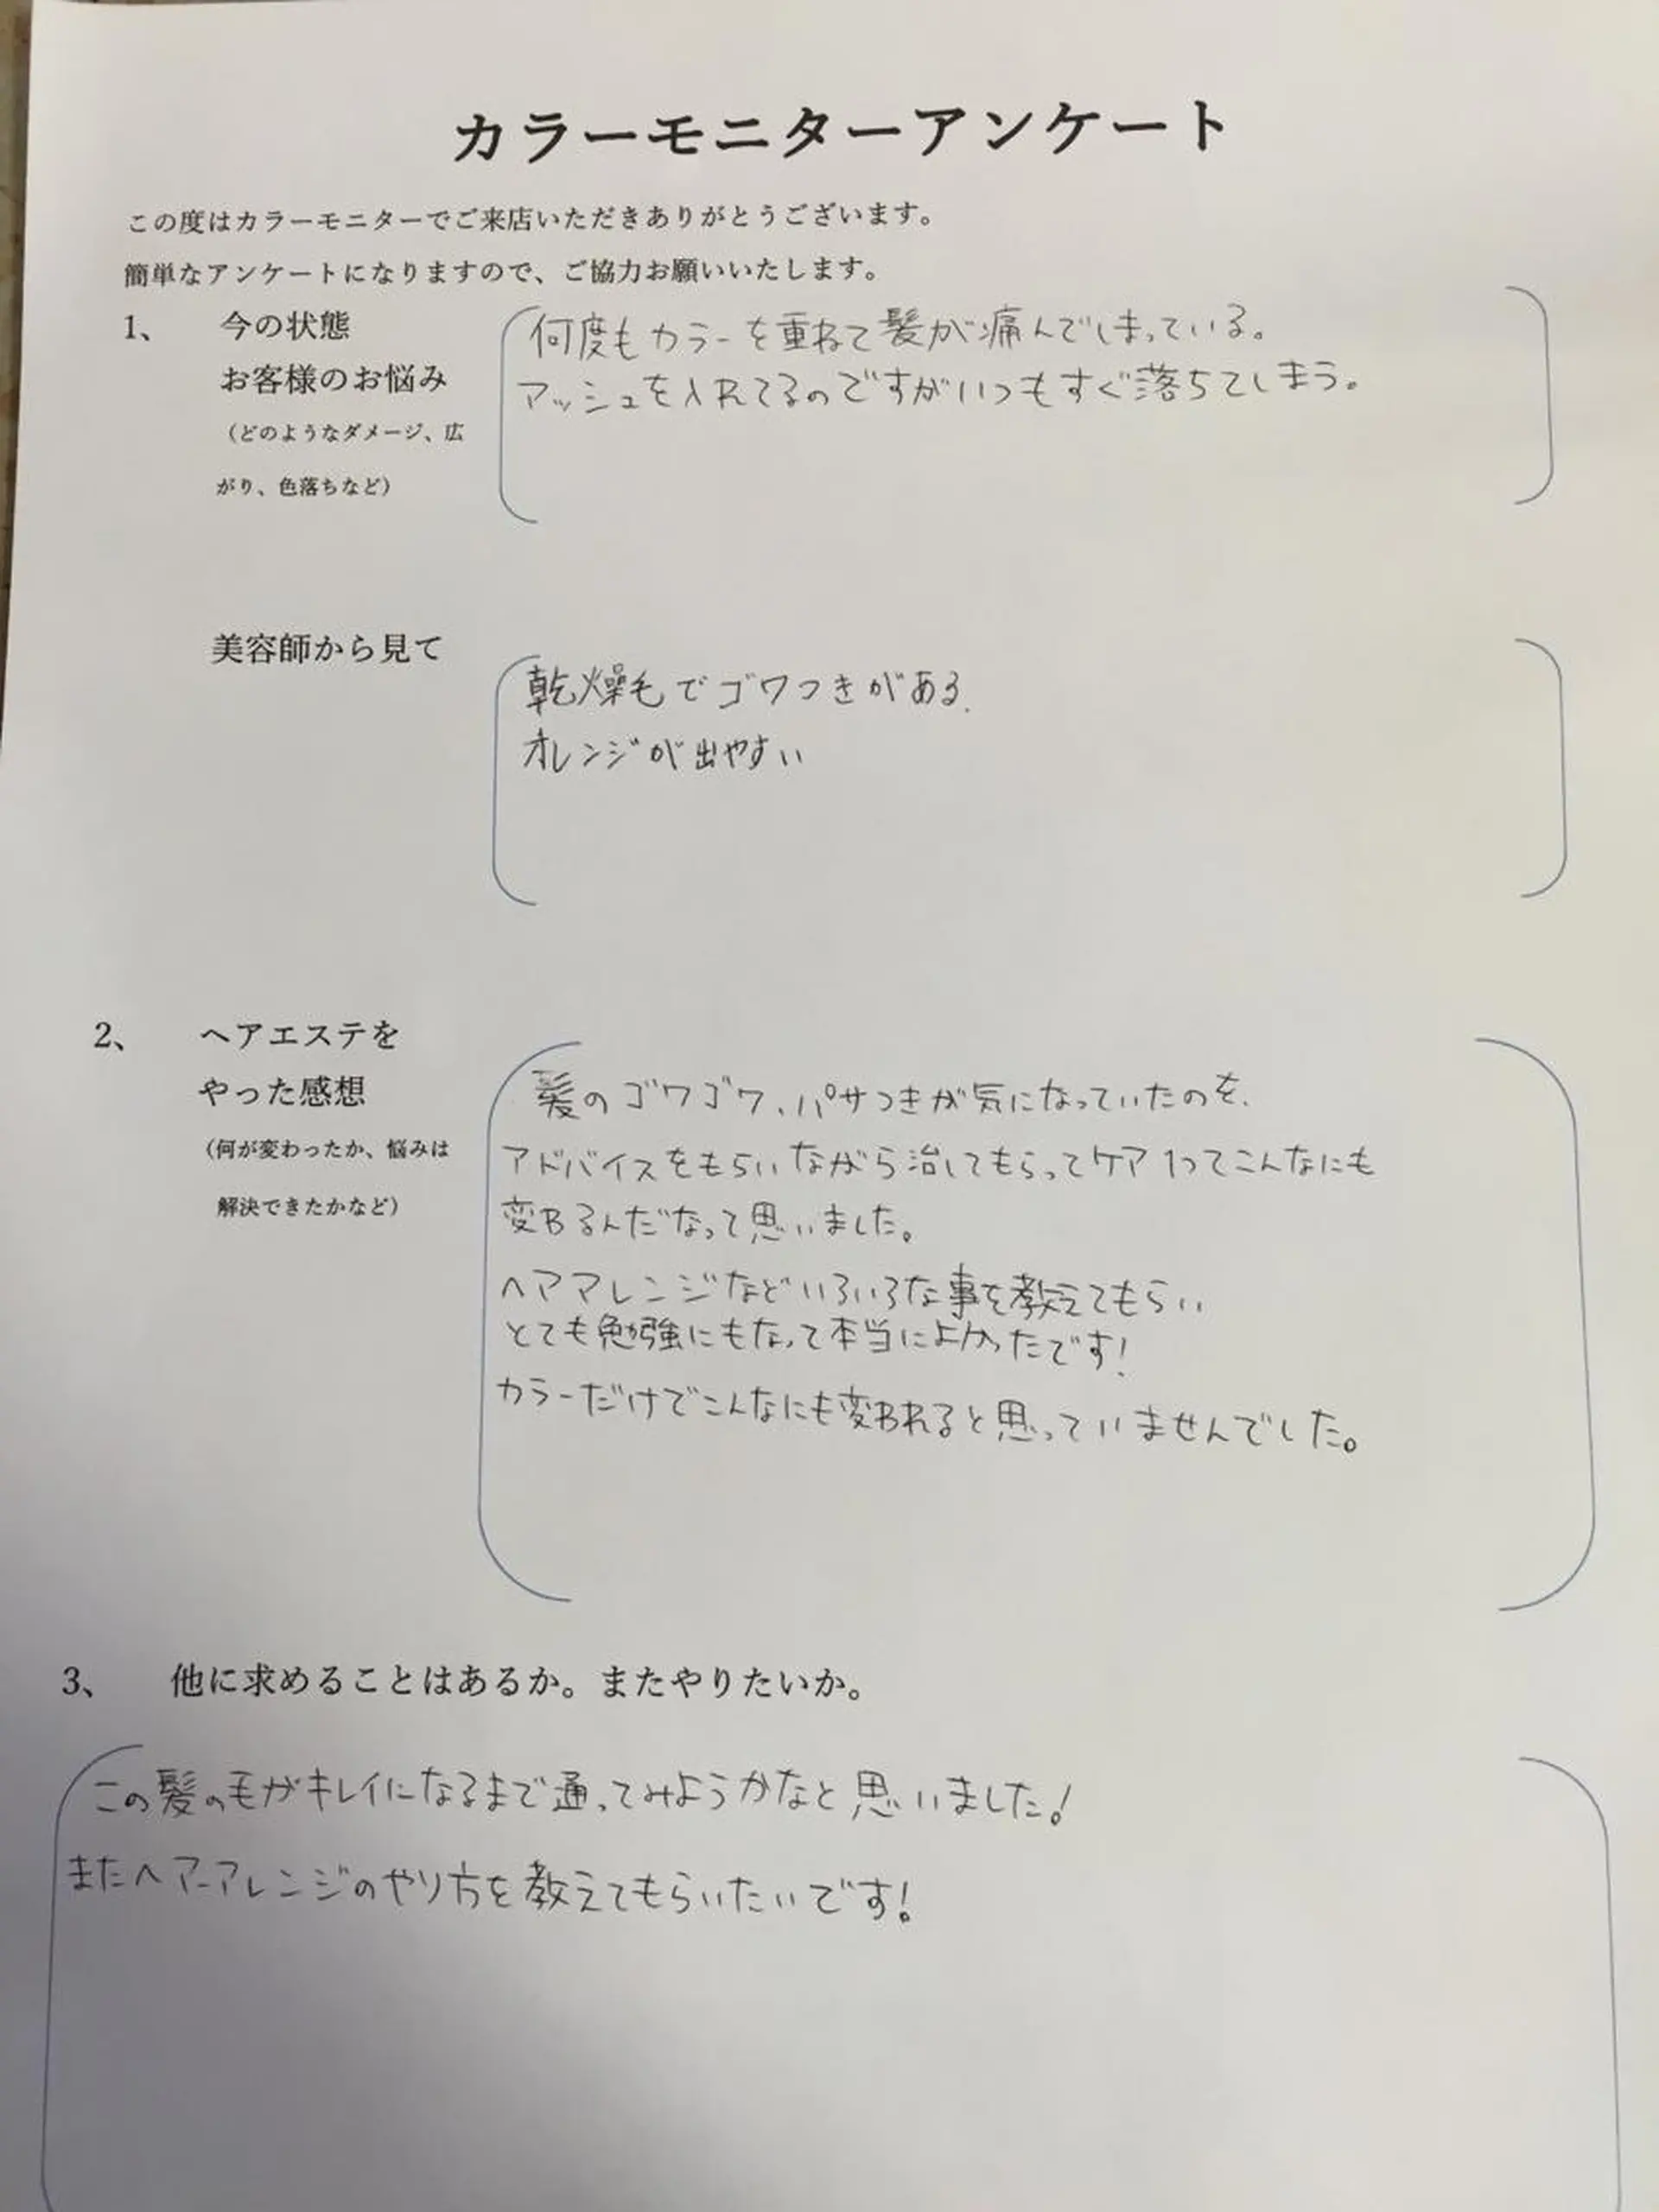 カラーモニターアンケート
この度はカラーモニターでご来店いただきありがとうございます。
簡単なアンケートになりますので、ご協力お願いいたします。
1、 今の状態
お客様のお悩み
（どのようなダメージ、広
がり、色落ちなど）
何度もカラーを重ねて髪が痛んでしまっている。
アッシュを入れてるのですがいつもすぐ落ちてしまう。
美容師から見て
乾燥毛でゴワつきがある.
オレンジが出やすい
2、 ヘアエステを
やった感想
（何が変わったか、悩みは
解決できたかなど）
髪のゴワゴワ、パサつきが気になっていたのを、
アドバイスをもらいながら治してもらってケア1つでこんなにも
変わるんだなって思いました。
ヘアアレンジなどいろいろな事を教えてもらい
とても勉強にもなって本当によかったです!
カラーだけでこんなにも変われると思っていませんでした。
3、 他に求めることはあるか。またやりたいか。
この髪の毛がキレイになるまで通ってみようかなと思いました!
またヘアーアレンジのやり方を教えてもらいたいです!